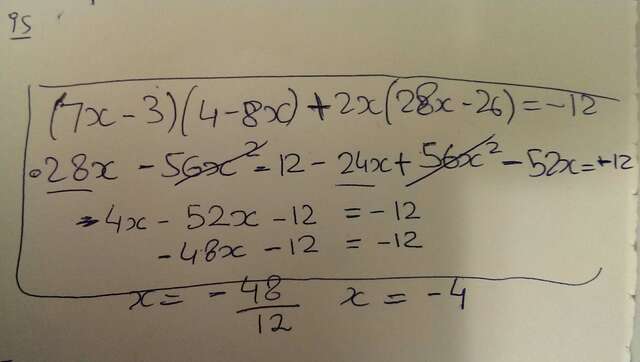 95
(7x-3)(4-8x)+2x(28x-26)=-12
28x - 56x² - 12 - 24x + 56x² - 52x = -12
4x - 52x - 12 = -12
-48x - 12 = -12
x = -48/12 x = -4